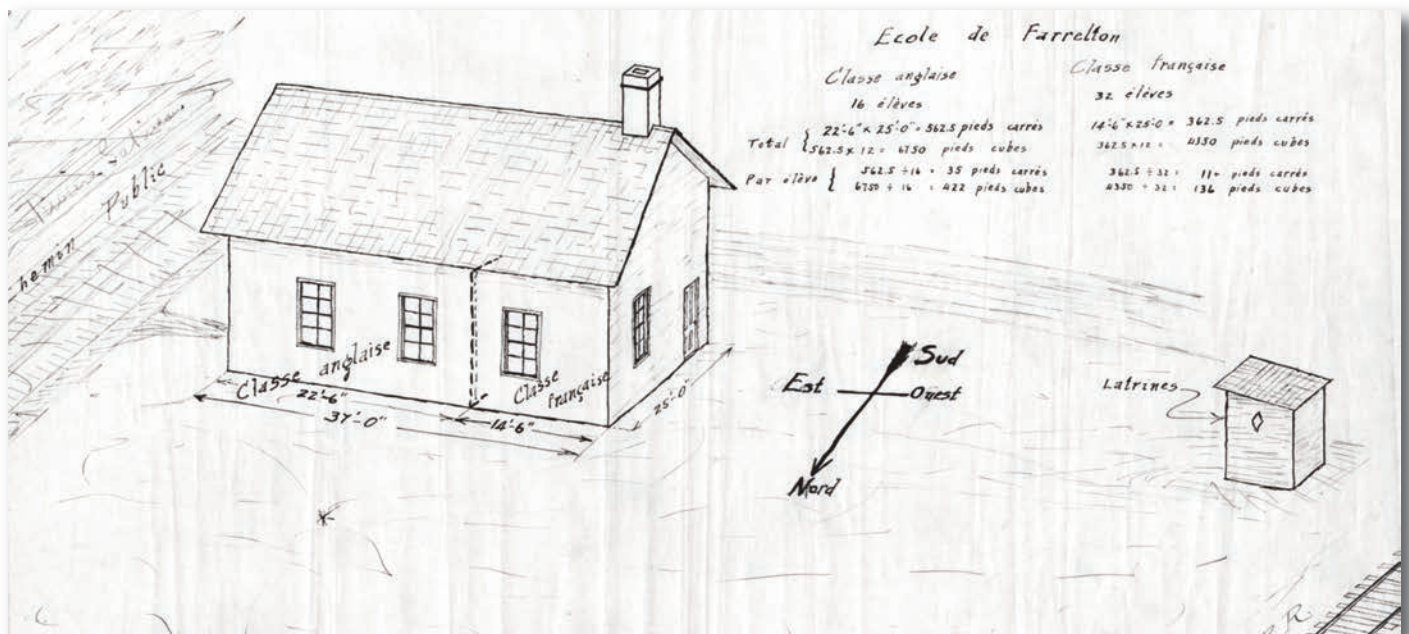 Ecole de Farrelton
Classe anglaise
16 élèves
Total { 22'-6" x 25'-0" = 562.5 pieds carrés
562.5 x 12 = 6750 pieds cubes
Par élève { 562.5 ÷ 16 = 35 pieds carrés
6750 ÷ 16 = 422 pieds cubes
Classe française
32 élèves
14'-6" x 25'-0 = 362.5 pieds carrés
362.5 x 12 = 4350 pieds cubes
362.5 ÷ 32 = 11+ pieds carrés
4350 ÷ 32 = 136 pieds cubes
hemin Public
Classe anglaise
22'-6"
37'-0"
Classe
française
14'-6"
25'-0"
Sud
Est
Ouest
Nord
Latrines
R